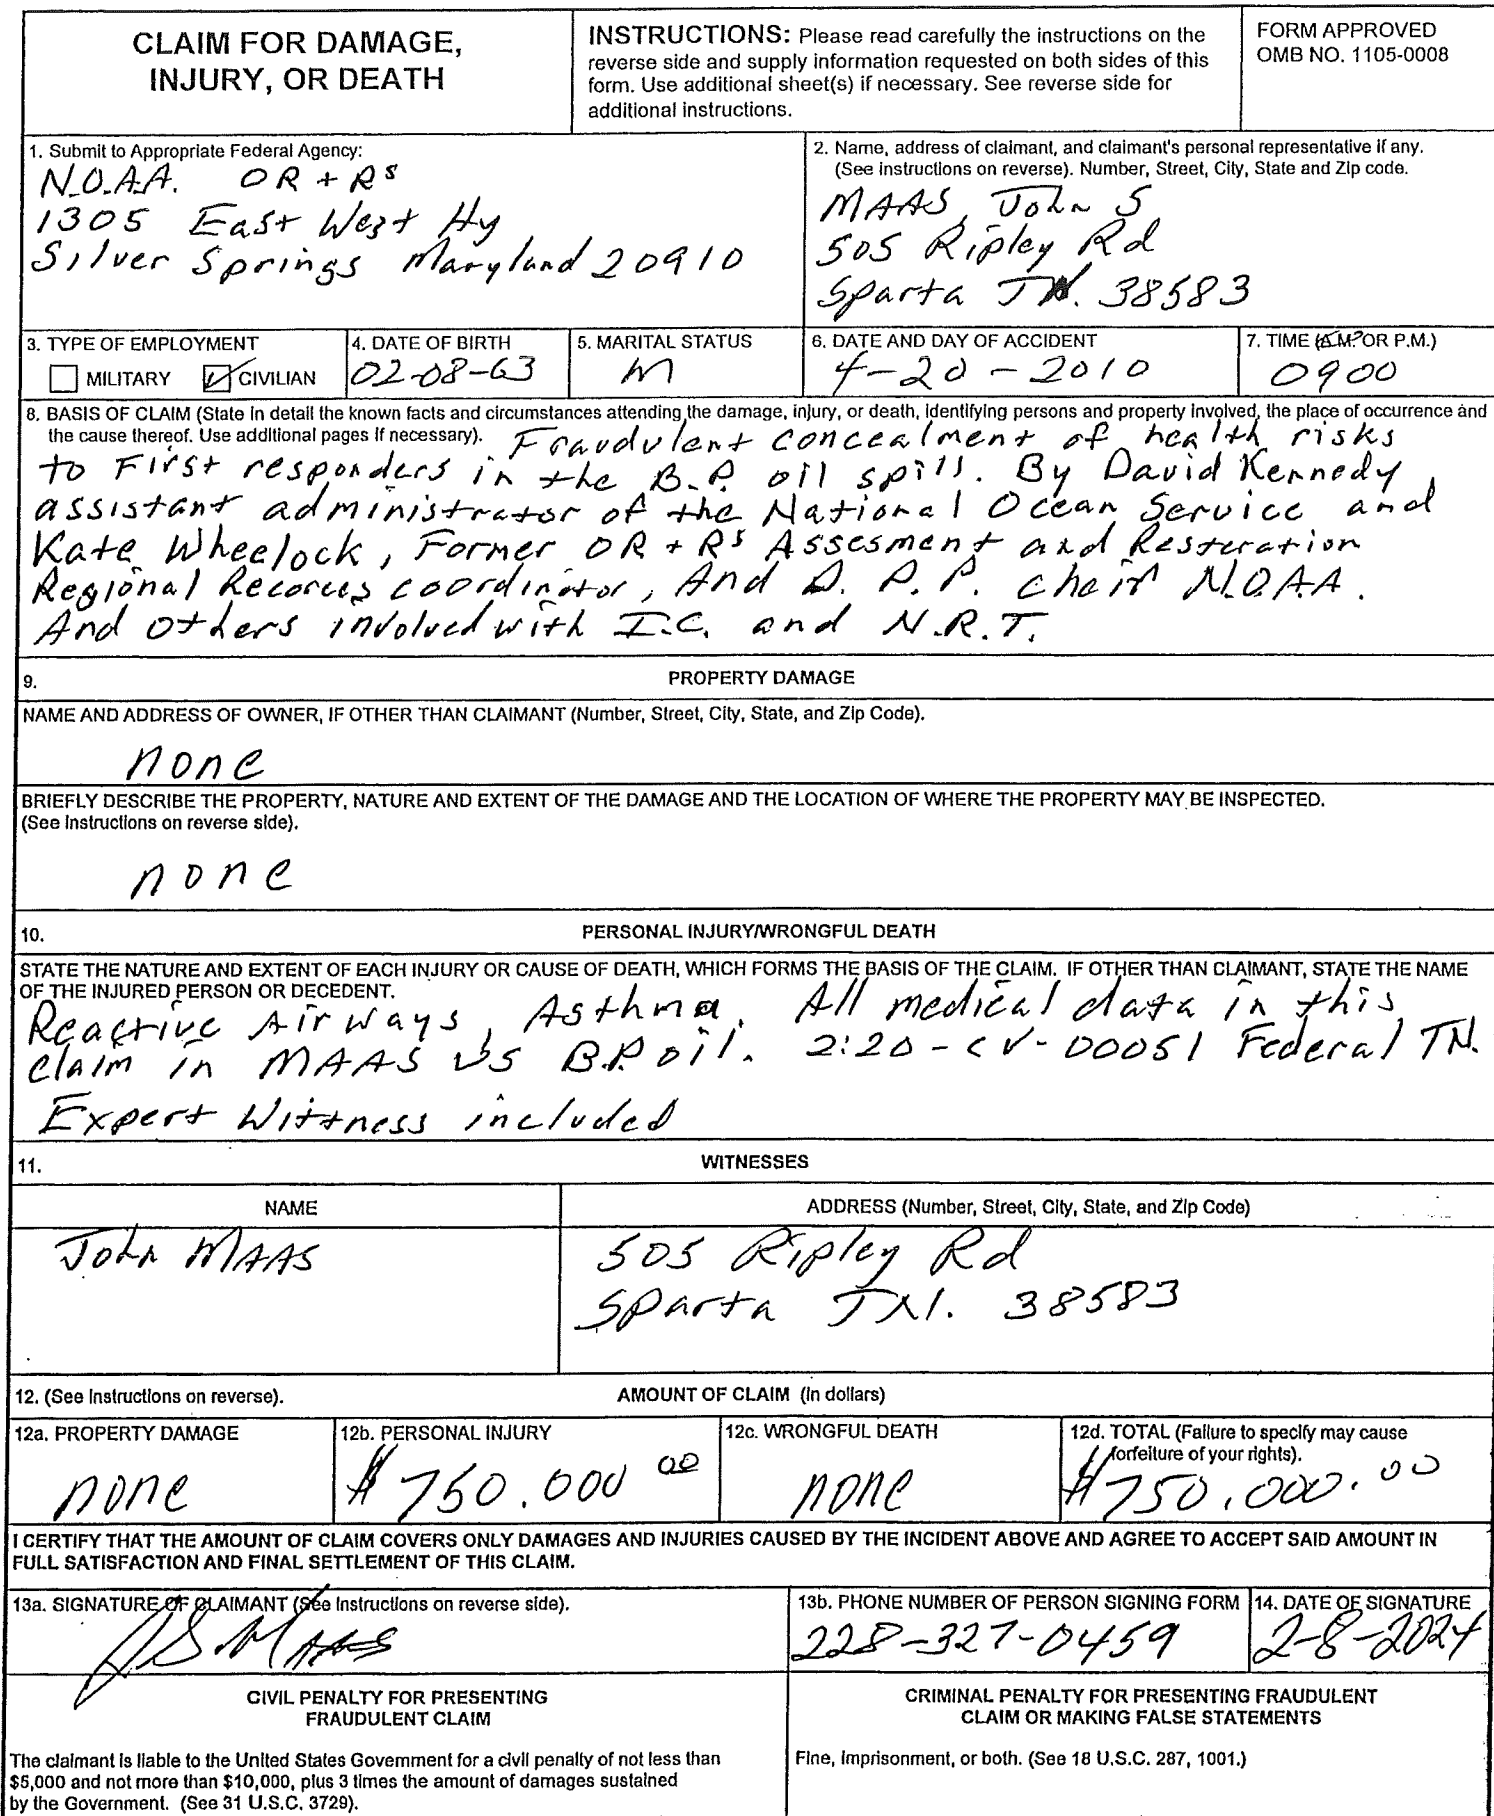 CLAIM FOR DAMAGE,
INJURY, OR DEATH
INSTRUCTIONS: Please read carefully the instructions on the
reverse side and supply information requested on both sides of this
form. Use additional sheet(s) if necessary. See reverse side for
additional instructions.
FORM APPROVED
OMB NO. 1105-0008
1. Submit to Appropriate Federal Agency:
N.O.A.A. OR + Rs
1305 East West Hy
Silver Springs Maryland 20910
2. Name, address of claimant, and claimant's personal representative if any.
(See instructions on reverse). Number, Street, City, State and Zip code.
MAAS, John S
505 Ripley Rd
Sparta TN. 38583
3. TYPE OF EMPLOYMENT
MILITARY CIVILIAN
4. DATE OF BIRTH
02-08-63
5. MARITAL STATUS
M
6. DATE AND DAY OF ACCIDENT
4-20-2010
7. TIME (A.M. OR P.M.)
0900
8. BASIS OF CLAIM (State in detail the known facts and circumstances attending the damage, injury, or death, identifying persons and property involved, the place of occurrence and
the cause thereof. Use additional pages if necessary). Fraudulent concealment of health risks
to First responders in the B.P. oil spill. By David Kennedy,
assistant administrator of the National Ocean Service and
Kate Wheelock, Former OR + Rs Assesment and Resteration
Regional Recorces coordinator, And D. P. P. chair N.O.A.A.
And others involved with I.C. and N.R.T.
9. PROPERTY DAMAGE
NAME AND ADDRESS OF OWNER, IF OTHER THAN CLAIMANT (Number, Street, City, State, and Zip Code).
none
BRIEFLY DESCRIBE THE PROPERTY, NATURE AND EXTENT OF THE DAMAGE AND THE LOCATION OF WHERE THE PROPERTY MAY BE INSPECTED.
(See instructions on reverse side).
none
10. PERSONAL INJURY/WRONGFUL DEATH
STATE THE NATURE AND EXTENT OF EACH INJURY OR CAUSE OF DEATH, WHICH FORMS THE BASIS OF THE CLAIM. IF OTHER THAN CLAIMANT, STATE THE NAME
OF THE INJURED PERSON OR DECEDENT.
Reactive Airways, Asthma. All medical data in this
claim in MAAS vs B.P. oil. 2:20-cv-00051 Federal TN.
Expert Wittness included
11. WITNESSES
NAME
ADDRESS (Number, Street, City, State, and Zip Code)
John MAAS
505 Ripley Rd
Sparta TN. 38583
12. (See instructions on reverse). AMOUNT OF CLAIM (in dollars)
12a. PROPERTY DAMAGE
none
12b. PERSONAL INJURY
$750.000 00
12c. WRONGFUL DEATH
none
12d. TOTAL (Failure to specify may cause
forfeiture of your rights).
$750,000.00
I CERTIFY THAT THE AMOUNT OF CLAIM COVERS ONLY DAMAGES AND INJURIES CAUSED BY THE INCIDENT ABOVE AND AGREE TO ACCEPT SAID AMOUNT IN
FULL SATISFACTION AND FINAL SETTLEMENT OF THIS CLAIM.
13a. SIGNATURE OF CLAIMANT (See instructions on reverse side).
JS Maas
13b. PHONE NUMBER OF PERSON SIGNING FORM
228-327-0459
14. DATE OF SIGNATURE
2-8-2024
CIVIL PENALTY FOR PRESENTING
FRAUDULENT CLAIM
The claimant is liable to the United States Government for a civil penalty of not less than
$5,000 and not more than $10,000, plus 3 times the amount of damages sustained
by the Government. (See 31 U.S.C. 3729).
CRIMINAL PENALTY FOR PRESENTING FRAUDULENT
CLAIM OR MAKING FALSE STATEMENTS
Fine, imprisonment, or both. (See 18 U.S.C. 287, 1001.)